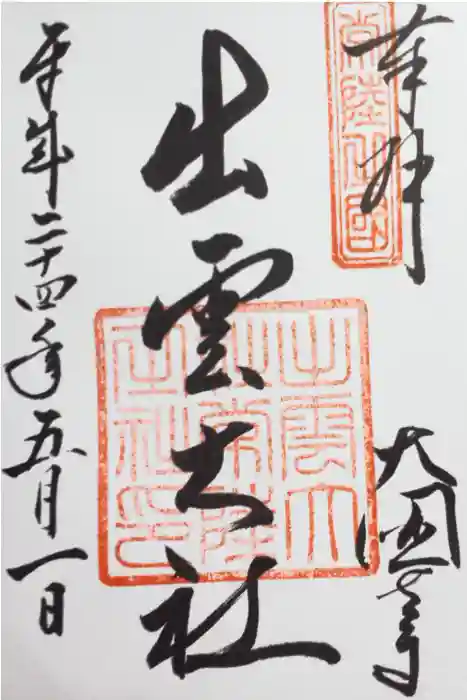 奉拝
常陸之國
大國
出雲大社
出雲大
社常陸
社印
平成二十四年五月一日